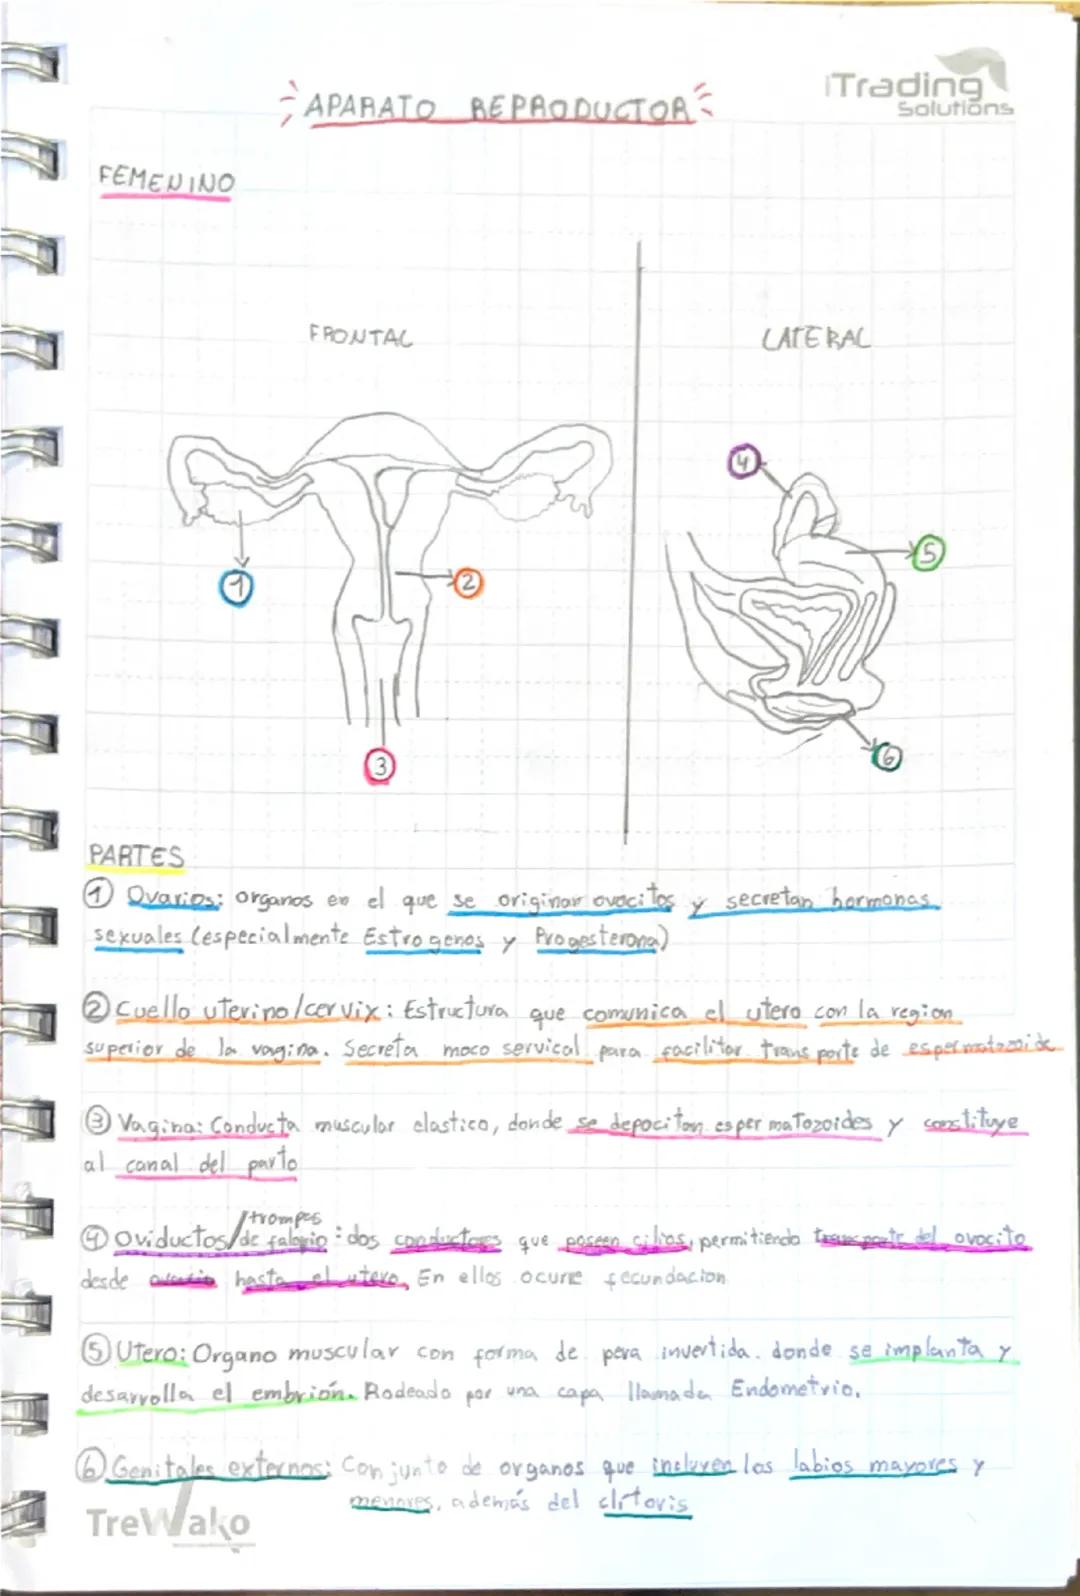 iTrading
Solutions
APARATO REPRODUCTOR
FEMENINO
FRONTAL
LATERAL
4
5
1
2
6
3
PARTES
1 Ovarios: organos en el que se originan ovocitos y secretan hormonas
sexuales (especialmente Estrogenos y Progesterona)
2 Cuello uterino/cervix: Estructura que comunica el utero con la region
superior de la vagina. Secreta moco servical para facilitar transporte de espermatozoide
3 Vagina: Conducta muscular elastico, donde se depocitan espermatozoides y constituye
al canal del parto
trompas
4 Oviductos/de falopio: dos conductores que poseen cilios, permitiendo transporte del ovocito
desde ovario hasta el utero. En ellos ocurre fecundacion
5 Utero: Organo muscular con forma de pera invertida. donde se implanta y
desarrolla el embrión. Rodeado por una capa llamada Endometrio.
6 Genitales externos: Conjunto de organos que incluyen los labios mayores y
menores, además del clitoris
TreWako